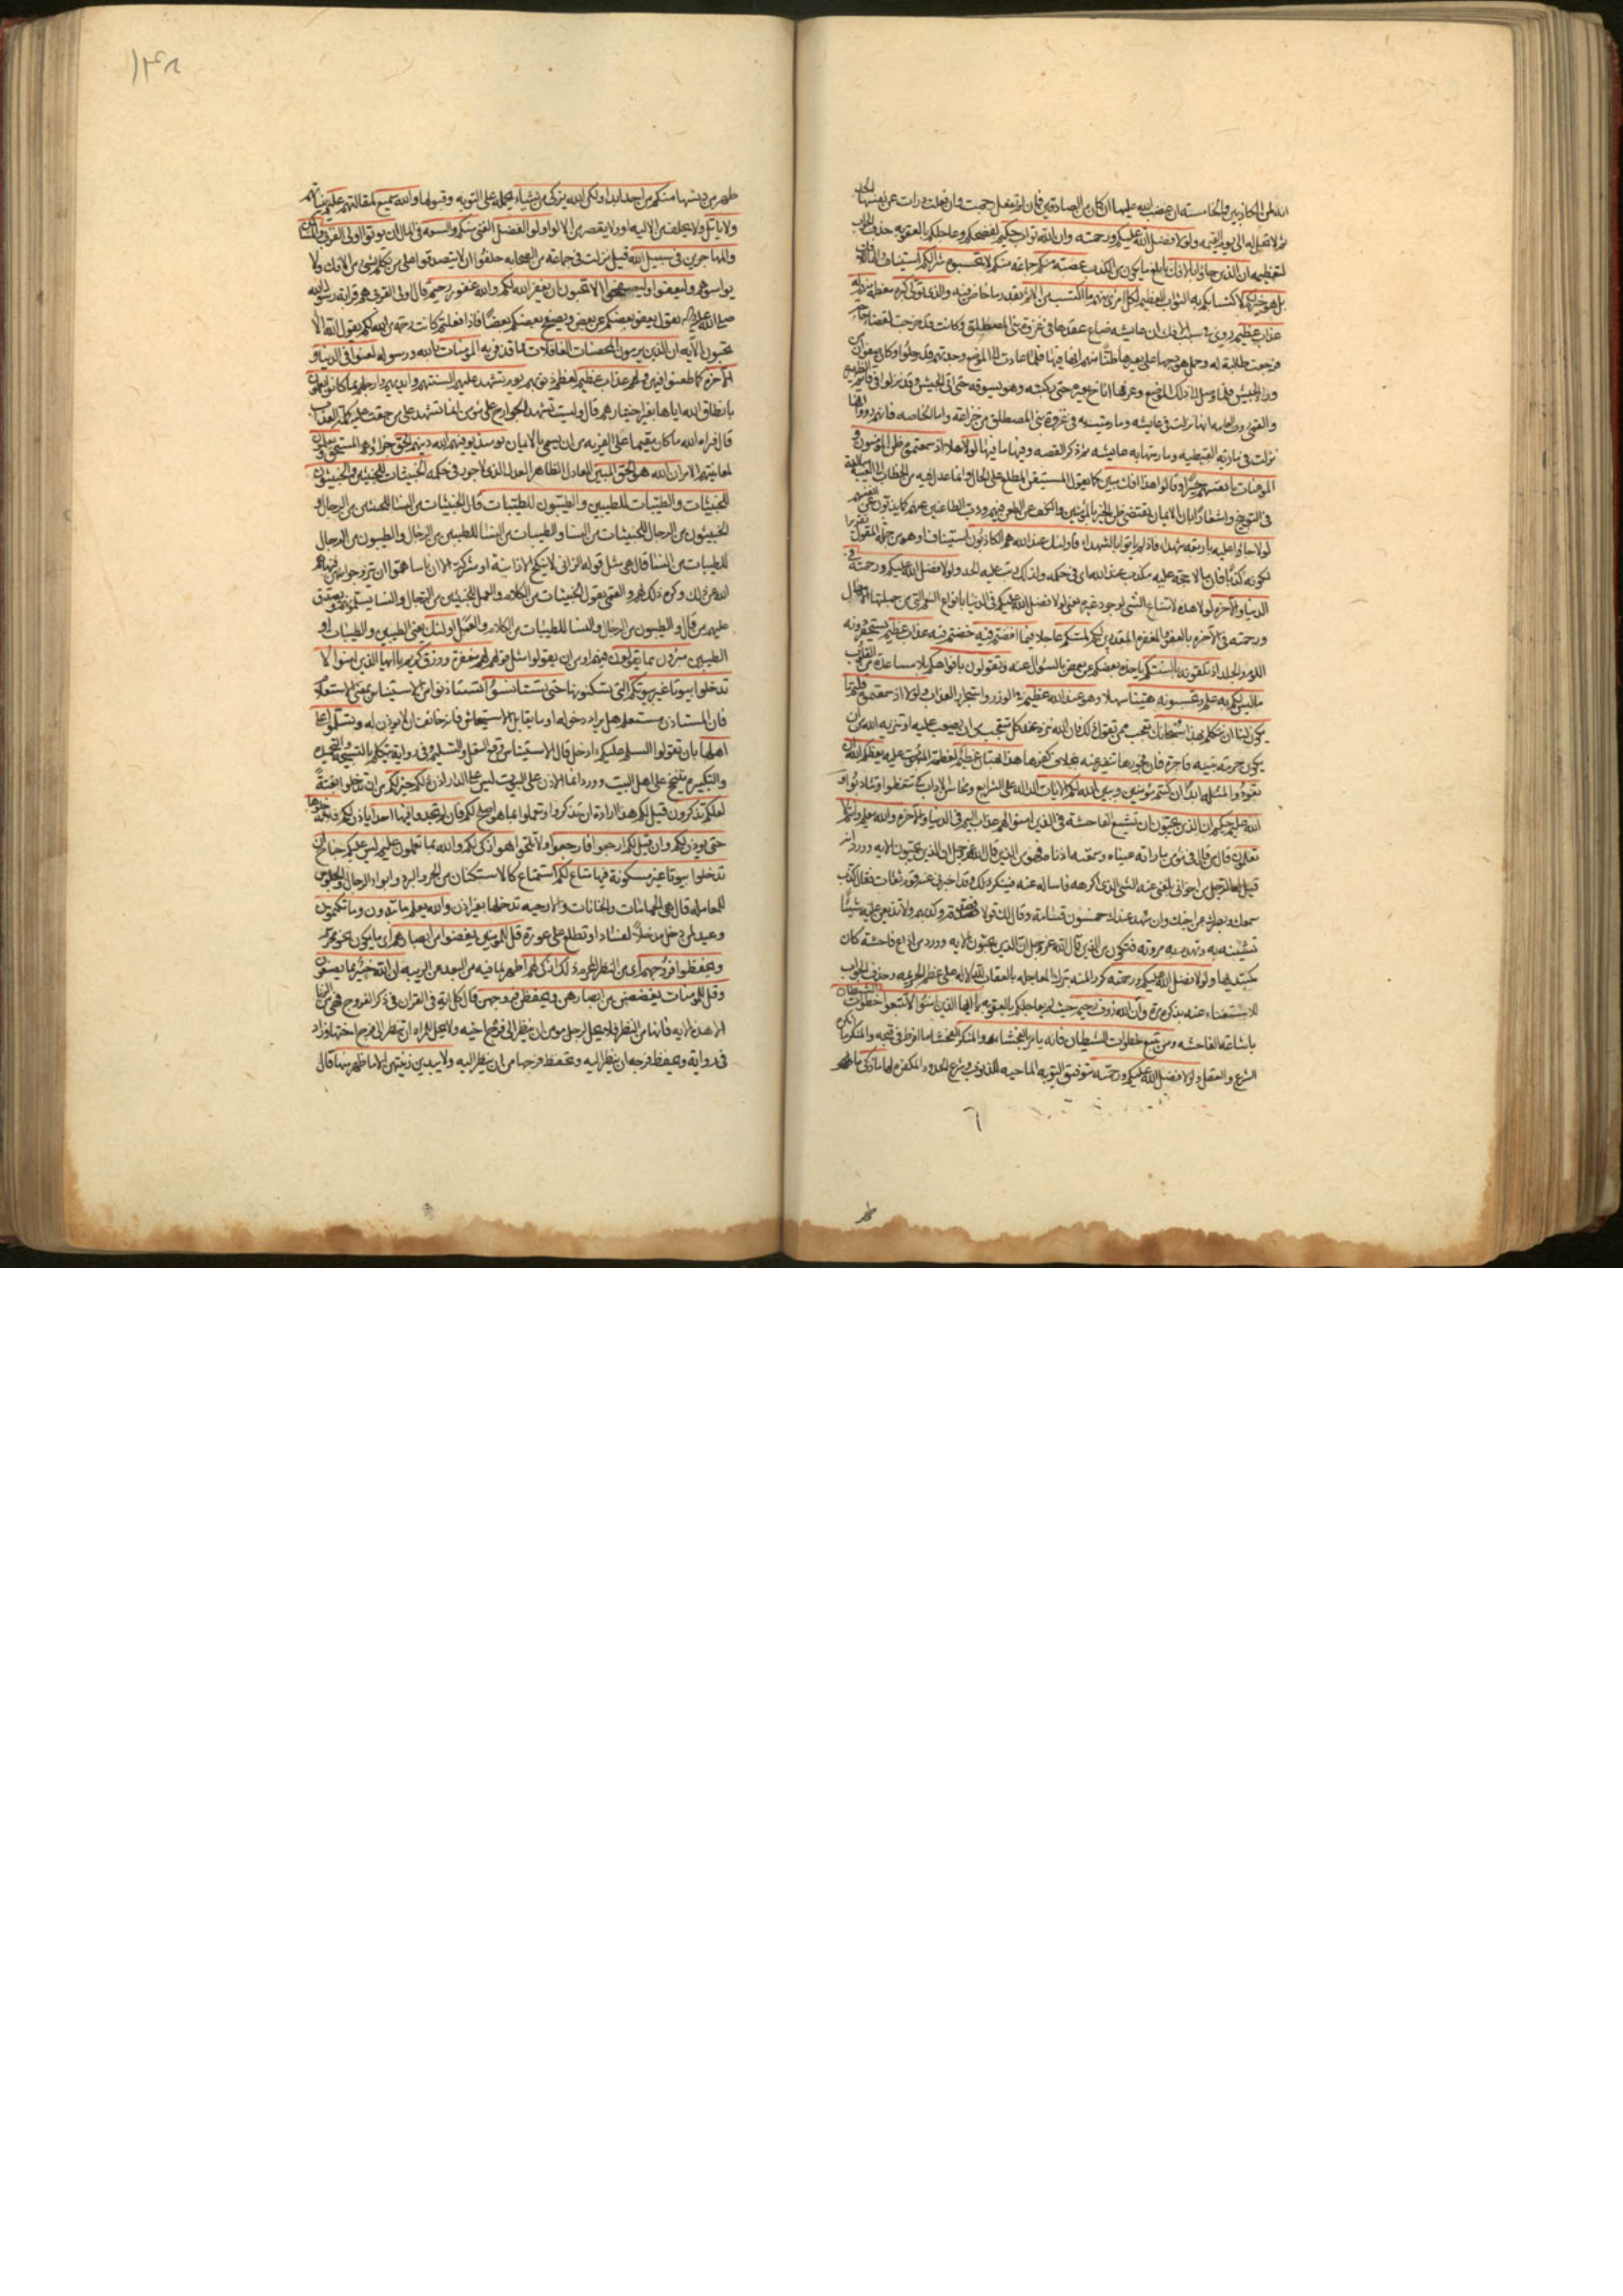 انه لمن الكاذبين والخامسة ان غضب الله عليها ان كان من الصادقين فان لم تفعل رجمت وان فعلت درات عن نفسها الحد
ثم لا تحل له الى يوم القيمه ولولا فضل الله عليكم ورحمته وان الله تواب حكيم لفضحكم وعاجلكم بالعقوبه حذف الجواب
لتعظيمه ان الذين جاؤا بالافك بابلغ ما يكون من الكذب عصبة منكم جماعه منكم لا تحسبوه شرا لكم استيناف
بل هو خير لكم لاكتسابكم به الثواب العظيم لكل امرئ منهم ما اكتسب من الاثم بقدر ما خاض فيه والذى تولى كبره معظمه منهم له
عذاب عظيم روى فى سبب الافك ان عايشه ضاع عقدها فى غزوة بنى المصطلق وكانت قد خرجت لقضاء حاجة
فرجعت طالبة له وحمل هودجها على بعيرها ظنا منهم انها فيها فلما عادت الى الموضع وجدتهم قد رحلوا وكان صفوان من
وراء الجيش فلما وصل الى ذلك الموضع وعرفها اناخ بعيره حتى ركبته وهو يسوقه حتى اتى الجيش وقد نزلوا فى قائم الظهيره
والقمى روت العامه انها نزلت فى عايشه وما رميت به فى غزوة بنى المصطلق من خزاعة واما الخاصه فانهم رووا انها
نزلت فى مارية القبطيه وما رمتها به عايشه ثم ذكر القصه وفيها ما فيها لولا هلا اذ سمعتموه ظن المؤمنون و
المؤمنات بانفسهم خيرا وقالوا هذا افك مبين كما يقول المستيقن المطلع على الحال وانما عدل فيه من الخطاب الى الغيبة مبالغة
فى التوبيخ واشعارا بان الايمان يقتضى ظن الخير بالمؤمنين والكف عن الطعن فيهم وذب الطاعنين عنهم كما يذبون عن انفسهم
لولا جاؤا عليه باربعة شهداء فاذ لم ياتوا بالشهداء فاولئك عند الله هم الكاذبون استيناف او هو من جملة المقول تقريرا
لكونه كذبا فان ما لا حجة عليه مكذب عند الله اى فى حكمه ولذلك رتب عليه الحد ولولا فضل الله عليكم ورحمته فى
الدنيا والاخرة لولا هذه لامتناع الشى لوجود غيره يعنى لولا فضل الله عليكم فى الدنيا بانواع النعم التى من جملتها الامهال
ورحمته فى الاخرة بالعفو والمغفرة المقدرين لكم لمسكم عاجلا فيما افضتم فيه خضتم فيه عذاب عظيم يستحقر دونه
اللوم والجلد اذ تلقونه بالسنتكم ياخذه بعضكم من بعض بالسئوال عنه وتقولون بافواهكم بلا مساعدة من القلوب
ما ليس لكم به علم وتحسبونه هينا سهلا وهو عند الله عظيم فى الوزر واستجرار العذاب ولولا اذ سمعتموه قلتم ما
يكون لنا ان نتكلم بهذا سبحانك تعجب ممن يقول ذلك فان الله ينزه عند كل متعجب من ان يصعب عليه او تنزيه الله من ان
يكون حرمة نبيه فاجرة فان فجورها تنفير عنه بخلاف كفرها هذا بهتان عظيم لعظمة المبهوت عليه يعظكم الله ان
تعودوا لمثله ابدا ان كنتم مؤمنين ويبين الله لكم الايات الدالة على الشرايع ومحاسن الاداب كى تتعظوا وتتادبوا و
الله عليم حكيم ان الذين يحبون ان تشيع الفاحشة فى الذين امنوا لهم عذاب اليم فى الدنيا والاخرة والله يعلم وانتم لا
تعلمون قال من قال فى مؤمن ما راته عيناه وسمعته اذناه فهو من الذين قال الله عز وجل ان الذين يحبون الايه وورد انه
قيل له الرجل من اخوانى يبلغنى عنه الشئ الذى اكرهه فاساله عنه فينكر ذلك وقد اخبرنى عنه قوم ثقات فقال كذب
سمعك وبصرك عن اخيك وان شهد عندك خمسون قسامة وقال لك قولا فصدقه وكذبهم ولا تذيعن عليه شيئا
تشينه به وتهدم به مروته فتكون من الذين قال الله عز وجل ان الذين يحبون الايه وورد من اذاع فاحشة كان
كمبتديها ولولا فضل الله عليكم ورحمته كرر المنه بترك المعاجله بالعقاب للدلاله على عظم الجريمه وحذف الجواب
للاستغناء عنه بذكره مرة وان الله رؤف رحيم حيث لم يعاجلكم بالعقوبه يا ايها الذين امنوا لا تتبعوا خطوات الشيطان
باشاعة الفاحشه ومن يتبع خطوات الشيطان فانه يامر بالفحشاء والمنكر الفحشاء ما افرط فى قبحه والمنكر ما انكره
الشرع والعقل ولولا فضل الله عليكم ورحمته بتوفيق التوبه الماحيه للذنوب وشرع الحدود المكفره لها ما زكى ما طهر
طهر من دنسها منكم من احد ابدا ولكن الله يزكى من يشاء بحمله على التوبه وقبولها والله سميع لمقالتهم عليم بنياتهم
ولا ياتل ولا يحلف من الاليه او ولا يقصر من الالو اولوا الفضل الغنى منكم والسعه فى المال ان يوتوا اولى القربى والمساكين
والمهاجرين فى سبيل الله قيل نزلت فى جماعة من الصحابه حلفوا ان لا يتصدقوا على من تكلم بشئ من الافك ولا
يواسوهم وليعفوا وليصفحوا الا تحبون ان يغفر الله لكم والله غفور رحيم قال اولى القربى هم قرابة رسول الله
صلى الله عليه واله يقول يعفو بعضكم عن بعض ويصفح بعضكم بعضا فاذا فعلتم كانت رحمة من الله لكم يقول الله الا
تحبون الايه ان الذين يرمون المحصنات الغافلات مما قذفن به المؤمنات بالله ورسوله لعنوا فى الدنيا و
الاخرة كما طعنوا فيهن ولهم عذاب عظيم لعظم ذنوبهم يوم تشهد عليهم السنتهم وايديهم وارجلهم بما كانوا يعملون
بانطاق الله اياها بغير اختيارهم قال وليست تشهد الجوارح على مؤمن انما تشهد على من حقت عليه كلمة العذاب
لمعاينتهم الامر ان الله هو الحق المبين العادل الظاهر العدل الذى لا جور فى حكمه الخبيثات للخبيثين والخبيثون
للخبيثات والطيبات للطيبين والطيبون للطيبات قال الخبيثات من النساء للخبيثين من الرجال و
الخبيثون من الرجال للخبيثات من النساء والطيبات من النساء للطيبين من الرجال والطيبون من الرجال
للطيبات من النساء قال هى مثل قوله الزانى لا ينكح الا زانية او مشركة الا ان اناسا هموا ان يتزوجوا منهن فنهاهم
الله عن ذلك وكره ذلك لهم والقمى يقول الخبيثات من الكلام والعمل للخبيثين من الرجال والنساء يسلمونهم ويصدق
عليهم من قال والطيبون من الرجال والنساء للطيبات من الكلام والعمل اولئك يعنى الطيبين والطيبات او
الطيبين مبرؤن مما يقولون فيهم او من ان يقولوا مثل قولهم لهم مغفرة ورزق كريم يا ايها الذين امنوا لا
تدخلوا بيوتا غير بيوتكم التى تسكنونها حتى تستانسوا تستاذنوا من الاستيناس بمعنى الاستعلام
فان المستاذن مستعلم هل يراد دخوله او ما يقابل الاستيحاش فانه خائف ان لا يوذن له وتسلموا على
اهلها بان تقولوا السلم عليكم ءادخل قال الاستيناس وقع النعل والتسليم وفى رواية يتكلم بالتسبيح والتحميد
والتكبير يتنحنح على اهل البيت وورد انما الاذن على البيوت ليس على الدار اذن ذلكم خير لكم من ان تدخلوا بغتة
لعلكم تذكرون قيل لكم هذا ارادة ان تذكروا وتعملوا بما هو اصلح لكم فان لم تجدوا فيها احدا ياذن لكم فلا تدخلوها
حتى يوذن لكم وان قيل لكم ارجعوا فارجعوا ولا تلحوا هو ازكى لكم والله بما تعملون عليم ليس عليكم جناح ان
تدخلوا بيوتا غير مسكونة فيها متاع لكم استمتاع كالاستكنان من الحر والبرد وايواء الرحال والجلوس
للمعامله قال هى الحمامات والخانات والارحيه تدخلها بغير اذن والله يعلم ما تبدون وما تكتمون
وعيد لمن دخل مدخلا لفساد او تطلع على عورة قل للمؤمنين يغضوا من ابصارهم اى ما يكون نحو محرم
ويحفظوا فروجهم اى من النظر المحرم ذلك ازكى لهم اطهر لما فيه من البعد عن الريبه ان الله خبير بما يصنعون
وقل للمؤمنات يغضضن من ابصارهن ويحفظن فروجهن قال كل اية فى القران فى ذكر الفروج فهى من الزنا
الا هذه الايه فانها من النظر فلا يحل لرجل مومن ان ينظر الى فرج اخيه ولا يحل للمراه ان تنظر الى فرج اختها وزاد
فى رواية ويحفظ فرجه ان ينظر اليه وتحفظ فرجها من ان ينظر اليه ولا يبدين زينتهن الا ما ظهر منها قال